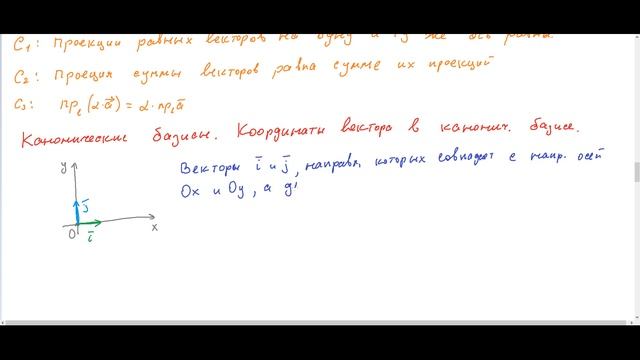 С₁: Проекции равных векторов на одну и ту же ось равны
С₂: Проеция суммы векторов равна сумме их проекций
С₃: пр_ℓ(α·a⃗) = α·пр_ℓ a̅
Канонические базисы. Координаты вектора в канонич. базисе.
y
Векторы i̅ и j̅, направл. которых совпадает с напр. осей
Ox и Oy, а д
j̅
O
i̅
x